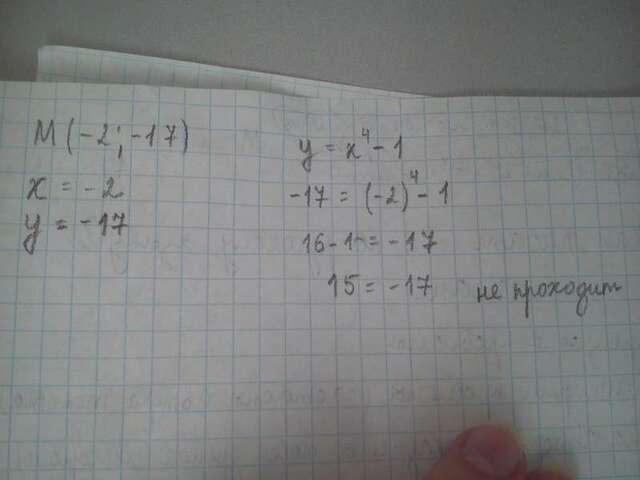 M(-2; -17)
x = -2
y = -17
y = x⁴ - 1
-17 = (-2)⁴ - 1
16 - 1 = -17
15 = -17 не проходит